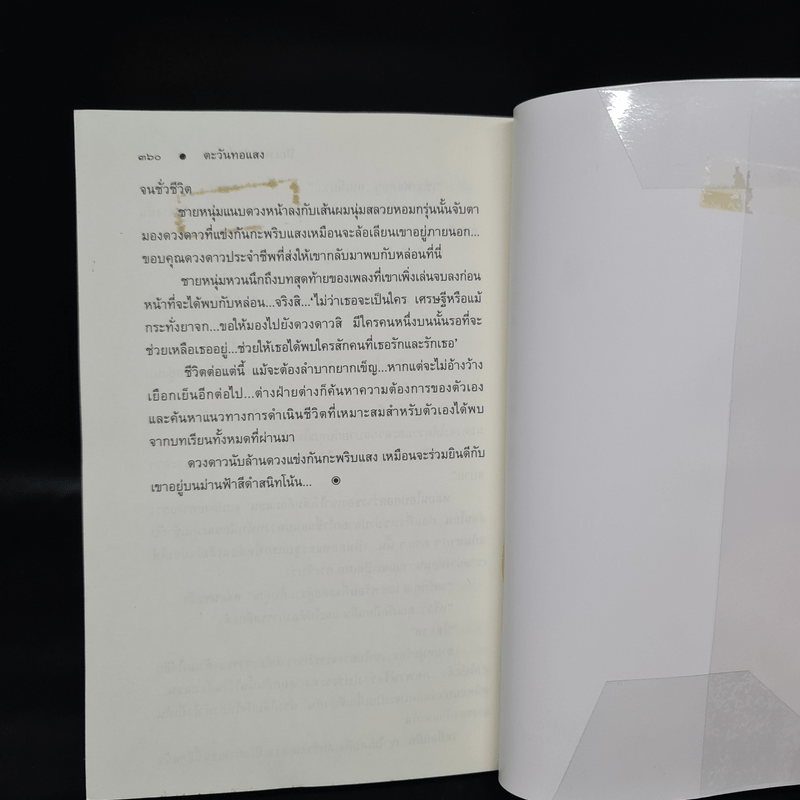 ๓๖๐ ● ตะวันทอแสง
จนชั่วชีวิต
ชายหนุ่มแนบดวงหน้าลงกับเส้นผมนุ่มสลวยหอมกรุ่นนั้นจับตา
มองดวงดาวที่แข่งกันกะพริบแสงเหมือนจะล้อเลียนเขาอยู่ภายนอก...
ขอบคุณดวงดาวประจำชีพที่ส่งให้เขากลับมาพบกับหล่อนที่นี่
ชายหนุ่มหวนนึกถึงบทสุดท้ายของเพลงที่เขาเพิ่งเล่นจบลงก่อน
หน้าที่จะได้พบกับหล่อน...จริงสิ...‘ไม่ว่าเธอจะเป็นใคร เศรษฐีหรือแม้
กระทั่งยาจก...ขอให้มองไปยังดวงดาวสิ มีใครคนหนึ่งบนนั้นรอที่จะ
ช่วยเหลือเธออยู่...ช่วยให้เธอได้พบใครสักคนที่เธอรักและรักเธอ’
ชีวิตต่อแต่นี้ แม้จะต้องลำบากยากเข็ญ...หากแต่จะไม่อ้างว้าง
เยือกเย็นอีกต่อไป...ต่างฝ่ายต่างก็ค้นหาความต้องการของตัวเอง
และค้นหาแนวทางการดำเนินชีวิตที่เหมาะสมสำหรับตัวเองได้พบ
จากบทเรียนทั้งหมดที่ผ่านมา
ดวงดาวนับล้านดวงแข่งกันกะพริบแสง เหมือนจะร่วมยินดีกับ
เขาอยู่บนม่านฟ้าสีดำสนิทโน้น... ◉